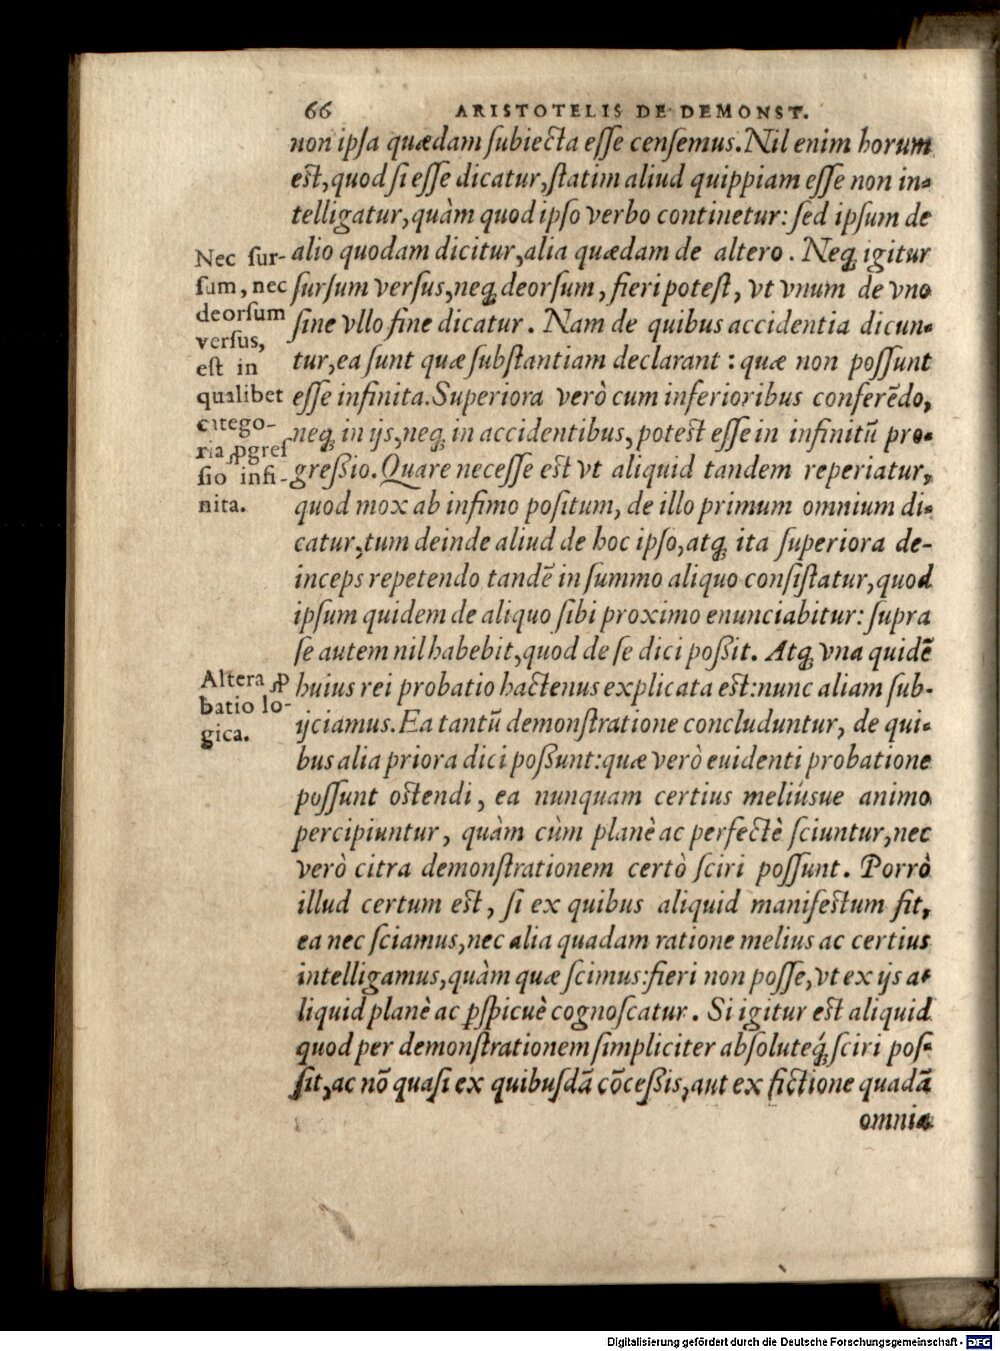 66 ARISTOTELIS DE DEMONST.
non ipſa quædam ſubiecta eſſe cenſemus. Nil enim horum
eſt, quod ſi eſſe dicatur, ſtatim aliud quippiam eſſe non in-
telligatur, quàm quod ipſo verbo continetur: ſed ipſum de
alio quodam dicitur, alia quædam de altero. Neq; igitur
ſurſum verſus, neq; deorſum, fieri poteſt, vt vnum de vno
ſine vllo fine dicatur. Nam de quibus accidentia dicun-
tur, ea ſunt quæ ſubſtantiam declarant: quæ non poſſunt
eſſe infinita. Superiora verò cum inferioribus conferēdo,
neq; in ijs, neq; in accidentibus, poteſt eſſe in infinitū pro-
greßio. Quare neceſſe eſt vt aliquid tandem reperiatur,
quod mox ab infimo poſitum, de illo primum omnium di-
catur, tum deinde aliud de hoc ipſo, atq; ita ſuperiora de-
inceps repetendo tandē in ſummo aliquo conſiſtatur, quod
ipſum quidem de aliquo ſibi proximo enunciabitur: ſupra
ſe autem nil habebit, quod de ſe dici poßit. Atq; vna quidē
huius rei probatio hactenus explicata eſt: nunc aliam ſub-
ijciamus. Ea tantū demonſtratione concluduntur, de qui-
bus alia priora dici poßunt: quæ verò euidenti probatione
poſſunt oſtendi, ea nunquam certius meliúsue animo
percipiuntur, quàm cùm planè ac perfectè ſciuntur, nec
verò citra demonſtrationem certò ſciri poſſunt. Porrò
illud certum eſt, ſi ex quibus aliquid manifeſtum fit,
ea nec ſciamus, nec alia quadam ratione melius ac certius
intelligamus, quàm quæ ſcimus: fieri non poſſe, vt ex ijs a-
liquid planè ac pſpicuè cognoſcatur. Si igitur eſt aliquid
quod per demonſtrationem ſimpliciter abſoluteq́; ſciri poſ-
ſit, ac nō quaſi ex quibuſdā cōceßis, aut ex fictione quadā
omnia
Nec ſur-
ſum, nec
deorſum
verſus,
eſt in
qualibet
catego-
ria ꝓgreſ
ſio infi-
nita.
Altera ꝓ
batio lo-
gica.
Digitalisierung gefördert durch die Deutsche Forschungsgemeinschaft - DFG